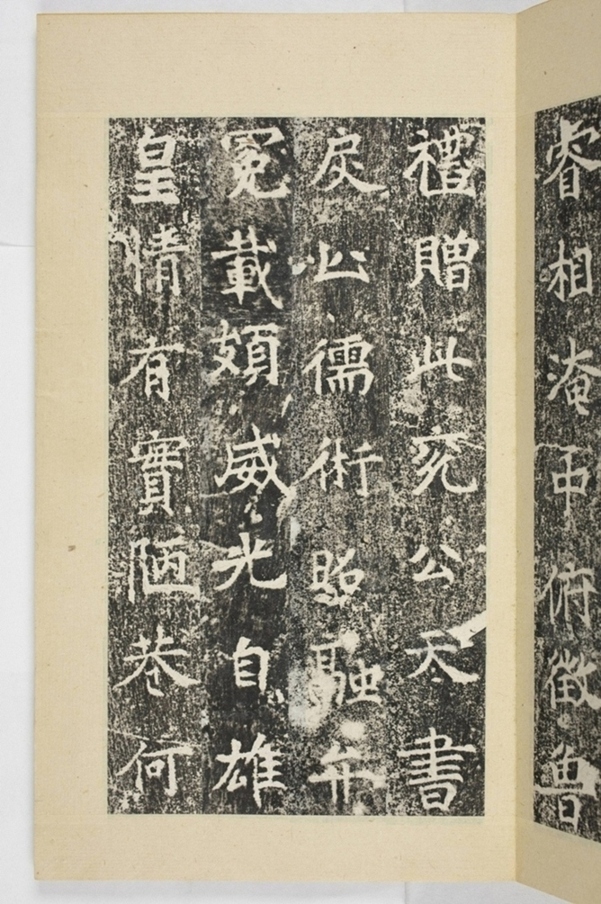 睿相淹中俯徵魯
禮贈此兖公天書
戾止儒術昭融弁
冕載頍威光自雄
皇情有實陋巷何